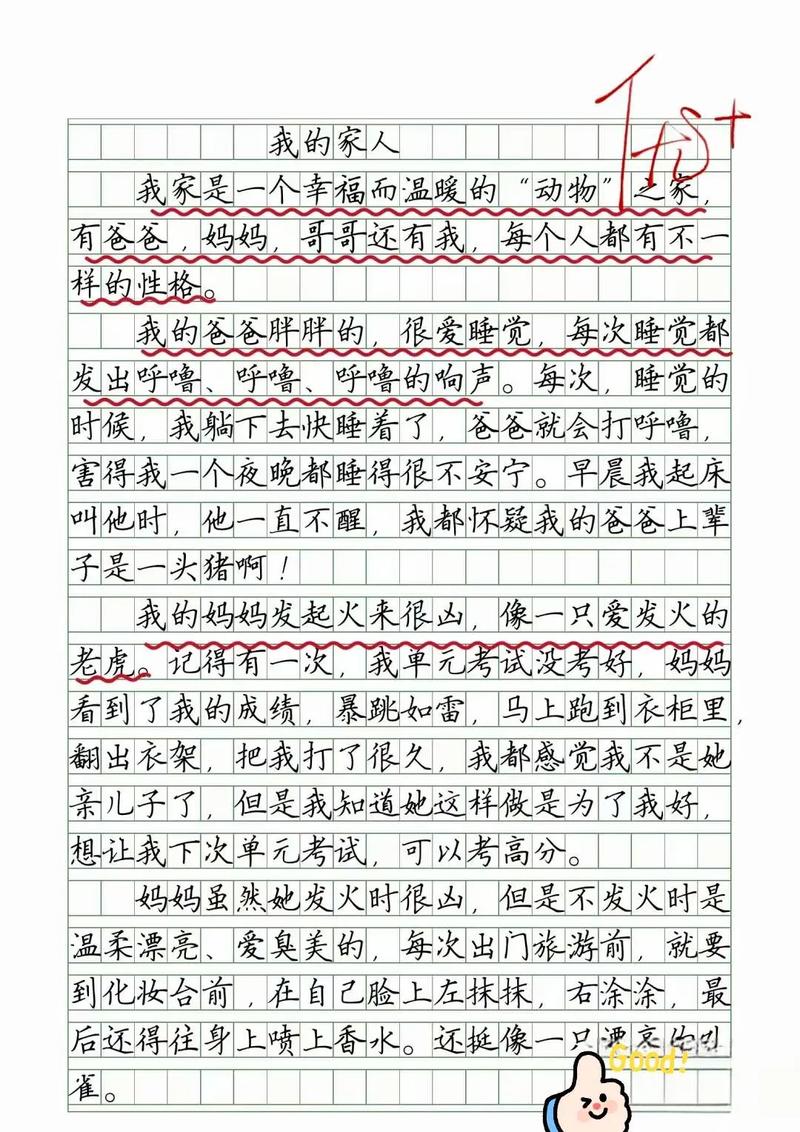 我的家人
我家是一个幸福而温暖的“动物”之家，
有爸爸，妈妈，哥哥还有我，每个人都有不一
样的性格。
我的爸爸胖胖的，很爱睡觉，每次睡觉都
发出呼噜、呼噜、呼噜的响声。每次，睡觉的
时候，我躺下去快睡着了，爸爸就会打呼噜，
害得我一个夜晚都睡得很不安宁。早晨我起床
叫他时，他一直不醒，我都怀疑我的爸爸上辈
子是一头猪啊！
我的妈妈发起火来很凶，像一只爱发火的
老虎。记得有一次，我单元考试没考好，妈妈
看到了我的成绩，暴跳如雷，马上跑到衣柜里，
翻出衣架，把我打了很久，我都感觉我不是她
亲儿子了，但是我知道她这样做是为了我好，
想让我下次单元考试，可以考高分。
妈妈虽然她发火时很凶，但是不发火时是
温柔漂亮、爱臭美的，每次出门旅游前，就要
到化妆台前，在自己脸上左抹抹，右涂涂，最
后还得往身上喷上香水。还挺像一只漂亮的
雀。
Good!